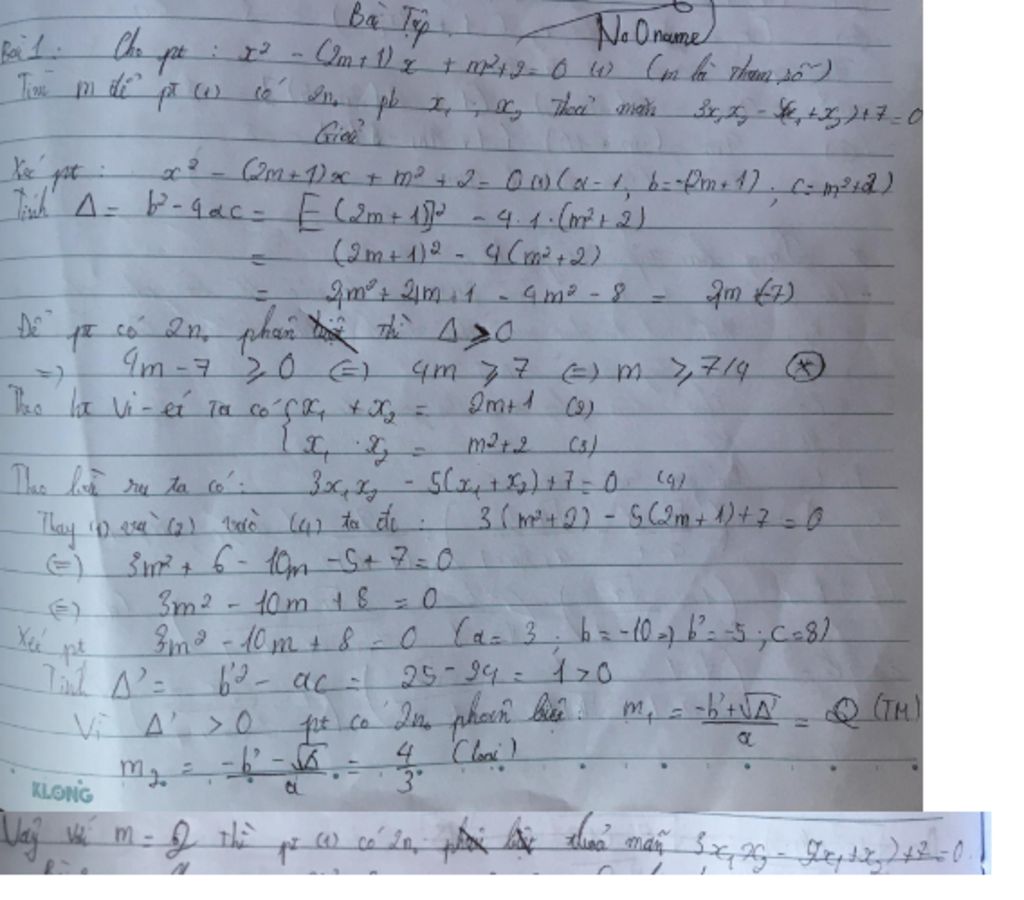 Bài Tập
No Oname
Bài 1: Cho pt : x² - (2m+1)x + m²+2 = 0 (1) (m là tham số)
Tìm m để pt (1) có 2n₀ pb x₁ ; x₂ thoả mãn 3x₁x₂ - 5(x₁+x₂)+7=0
Giải
Xét pt : x² - (2m+1)x + m² + 2 = 0 (1) (a=1; b=-(2m+1); c=m²+2)
Tính Δ = b²-4ac = [-(2m+1)]² - 4.1.(m²+2)
= (2m+1)² - 4(m²+2)
= 4m²+4m+1 - 4m² - 8 = 4m(-7)
Để pt có 2n₀ phân thì Δ ≥ 0
=) 4m-7 ≥ 0 (=) 4m ≥ 7 (=) m ≥ 7/4 (*)
Theo ht Vi-ét ta có { x₁ + x₂ = 2m+1 (2)
{ x₁ . x₂ = m²+2 (3)
Theo bài ra ta có: 3x₁x₂ - 5(x₁+x₂)+7=0 (4)
Thay (1) và (2) vào (4) ta đc : 3(m²+2) - 5(2m+1)+7=0
(=) 3m² + 6 - 10m -5+ 7=0
(=) 3m² - 10m + 8 = 0
Xét pt 3m² -10m + 8 = 0 (a= 3; b=-10=) b'=-5; c=8)
Tính Δ' = b'² - ac = 25-24 = 1 >0
Vì Δ' >0 pt có 2n₀ phân biệt: m₁ = -b'+√Δ' / a = 2 (TM)
m₂ = -b' - √Δ / a = 4/3 (loại)
KLONG
Vậy với m = 2 thì pt (1) có 2n₀ thoả mãn 3x₁x₂ - 5(x₁+x₂)+7=0.